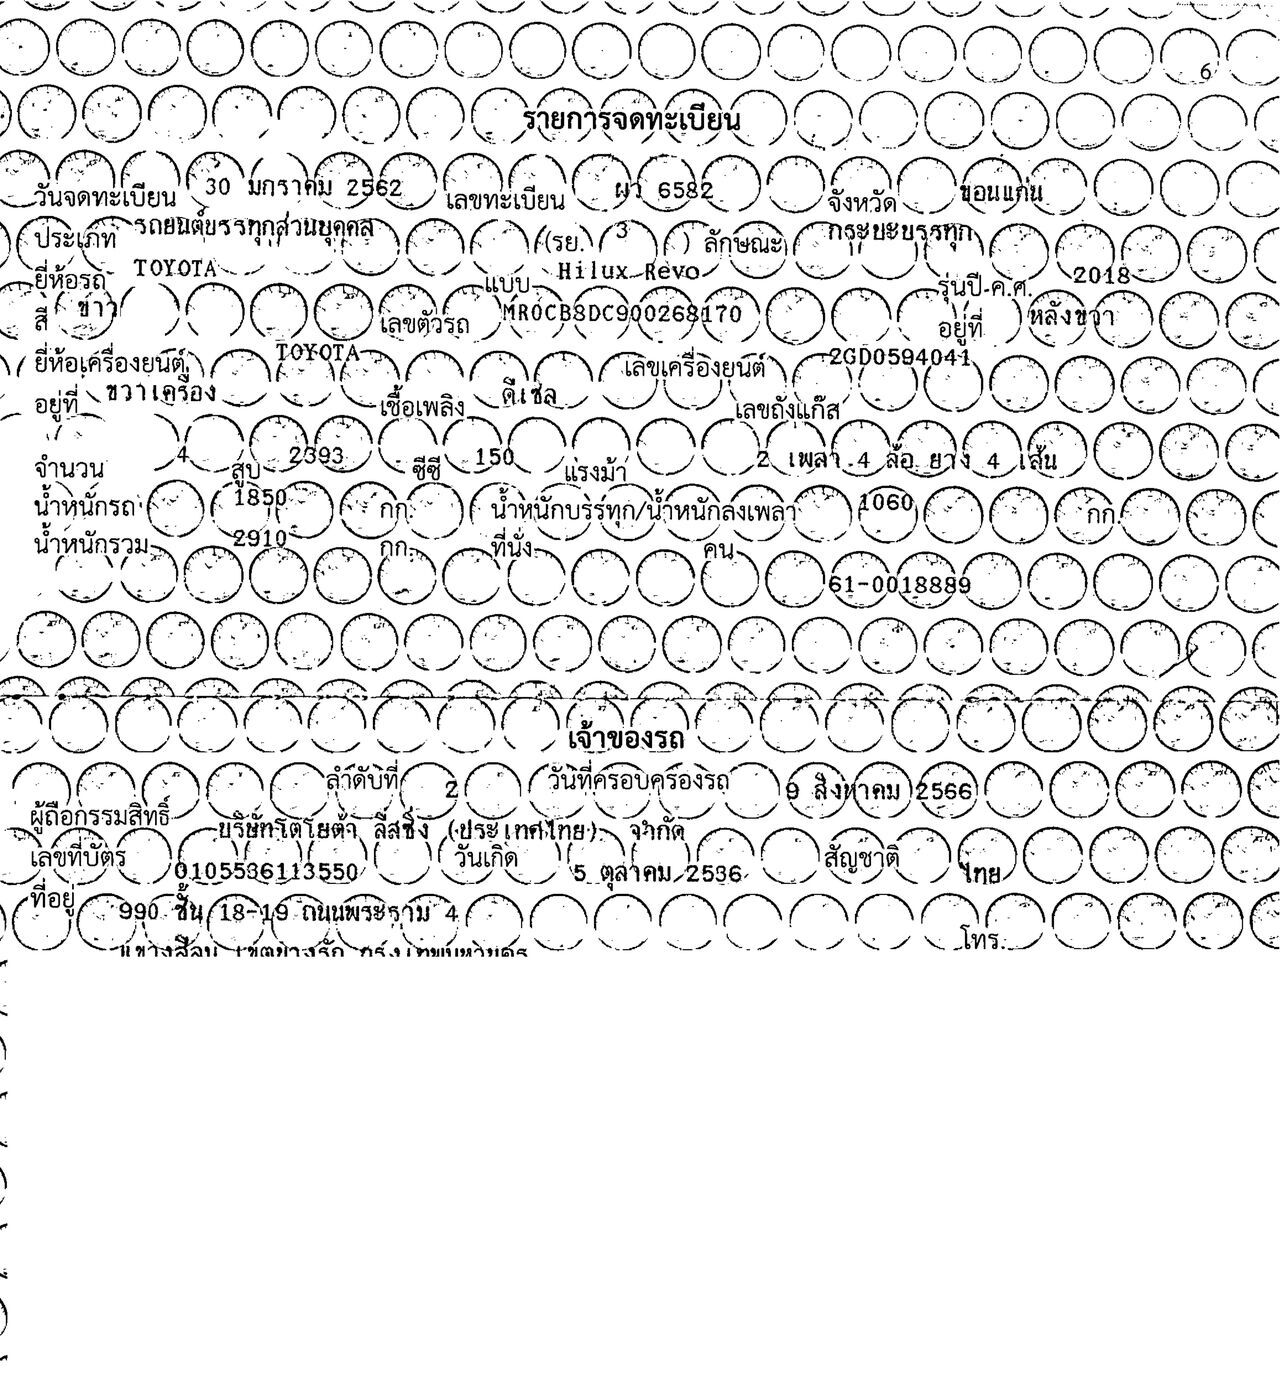 6
รายการจดทะเบียน
วันจดทะเบียน 30 มกราคม 2562 เลขทะเบียน ผา 6582 จังหวัด ขอนแก่น
ประเภท รถยนต์บรรทุกส่วนบุคคล (รย. 3 ) ลักษณะ กระบะบรรทุก
ยี่ห้อรถ TOYOTA แบบ Hilux Revo รุ่นปี ค.ศ. 2018
สี ขาว เลขตัวรถ MR0CB8DC900268170 อยู่ที่ หลังขวา
ยี่ห้อเครื่องยนต์ TOYOTA เลขเครื่องยนต์ 2GD0594041
อยู่ที่ ขวาเครื่อง เชื้อเพลิง ดีเซล เลขถังแก๊ส
จำนวน 4 สูบ 2393 ซีซี 150 แรงม้า 2 เพลา 4 ล้อ ยาง 4 เส้น
น้ำหนักรถ 1850 กก. น้ำหนักบรรทุก/น้ำหนักลงเพลา 1060 กก.
น้ำหนักรวม 2910 กก. ที่นั่ง คน
61-0018889
เจ้าของรถ
ลำดับที่ 2 วันที่ครอบครองรถ 9 สิงหาคม 2566
ผู้ถือกรรมสิทธิ์ บริษัทโตโยต้า ลีสซิ่ง (ประเทศไทย) จำกัด
เลขที่บัตร 0105536113550 วันเกิด 5 ตุลาคม 2536 สัญชาติ ไทย
ที่อยู่ 990 ชั้น 18-19 ถนนพระราม 4
แขวงสีลม เขตบางรัก กรุงเทพมหานคร โทร.